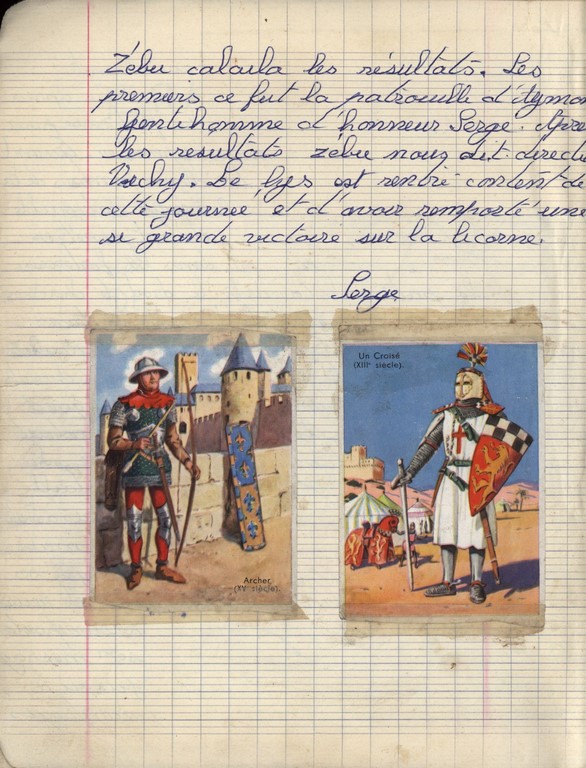 Zébu calcula les résultats. Les
premiers ce fut la patrouille d'Aymo
Gentilhomme d'honneur Serge. Apre
les resultats zébu nous dit directi
Vichy. Le lys est rentré content de
cette journée et d'avoir remporté une
si grande victoire sur la licorne.
Serge
Un Croisé
(XIIIe siècle).
Archer
(XVe siècle).